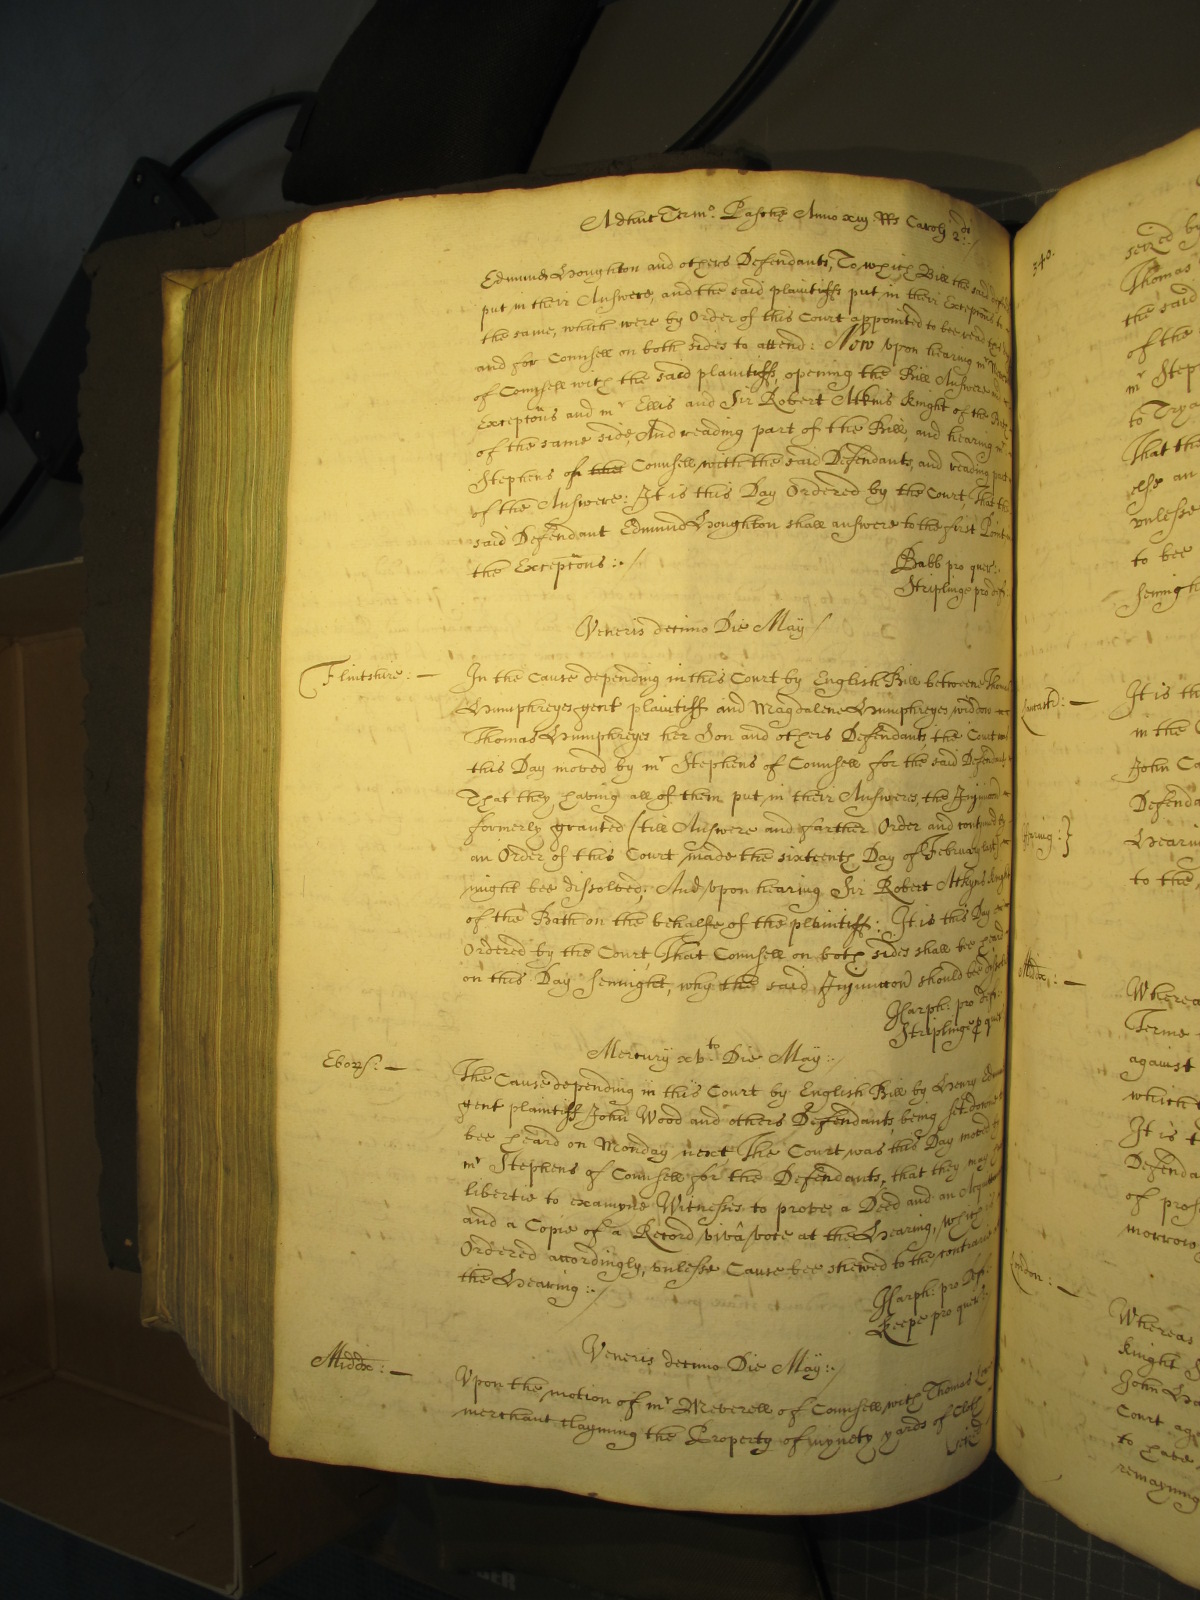 Adhuc Termo. Paschę Anno xiij Rs Caroli 2di:/
Edmund Houghton and others Defendants, To which Bill the said
put in their Answere, and the said plaintiffs put in their Excepcons to
the same, which were by Order of this Court appointed to bee read this
and for Counsell on both sides to attend: Now upon hearing mr
of Counsell with the said plaintiffs, opening the Bill Answere
Excepcons and mr Ellis and Sir Robert Atkins Knight of the Bath
of the same side, And reading part of the Bill, and hearing mr
Stephens of the Counsell with the said Defendants, and reading part
of the Answere: It is this Day Ordered by the Court, That the
said Defendant Edmund Houghton shall answere to the first Point
the Excepcons:./
Babb pro quer:
Striplinge pro def:
Veneris decimo Die May /
Flintshire: — In the Cause depending in this Court by English Bill betweene Thomas
Humphreyes gent plaintiff and Magdalene Humphreyes widow
Thomas Humphreyes her Son and others Defendants, the Court was
this Day moved by mr Stephens of Counsell for the said Defendants,
That they having all of them put in their Answeres, the Injunccon
formerly granted till Answere and farther Order and continued by
an Order of this Court made the sixteenth Day of February last
might bee dissolved; And upon hearing Sir Robert Atkyns Knight
of the Bath on the behalfe of the plaintiff: It is this Day
Ordered by the Court That Counsell on both sides shall bee heard
on this Day Sennight, why the said Injunccon should bee dissolved
Harph: pro def:
Striplinge p quer
Mercury xvto Die May:./
Eborr: — The Cause depending in this Court by English Bill by Henry
gent plaintiff John Wood and others Defendants, being set downe to
bee heard on Monday next The Court was this Day moved by
mr Stephens of Counsell for the Defendants, that they may
libertie to examyne Witnesses to prove a Deed and an
and a Copie of a Record vivâ voce at the Hearing, which is
Ordered accordingly, unlesse Cause bee shewed to the contrarie
the Hearing:./
Harph: pro Def:
Keepe pro quer:
Veneris decimo Die May:./
Middx: — Upon the motion of mr Meverell of Counsell with Thomas
merchant clayming the Property of nynety yards of Cloth
seized
340.
seized by
Thomas
the said
of the
mr Step
to Trya
That the
else an
unlesse
to bee
Sennigh
Lancastr: — It is th
in the C
John Ca
Defenda
Hearin
to the
Middx: — Wherea
Terme
against
which
It is t
Defenda
of pros
morrow
London: — Whereas
Knight
John Ha
Court ag
to have
remayning